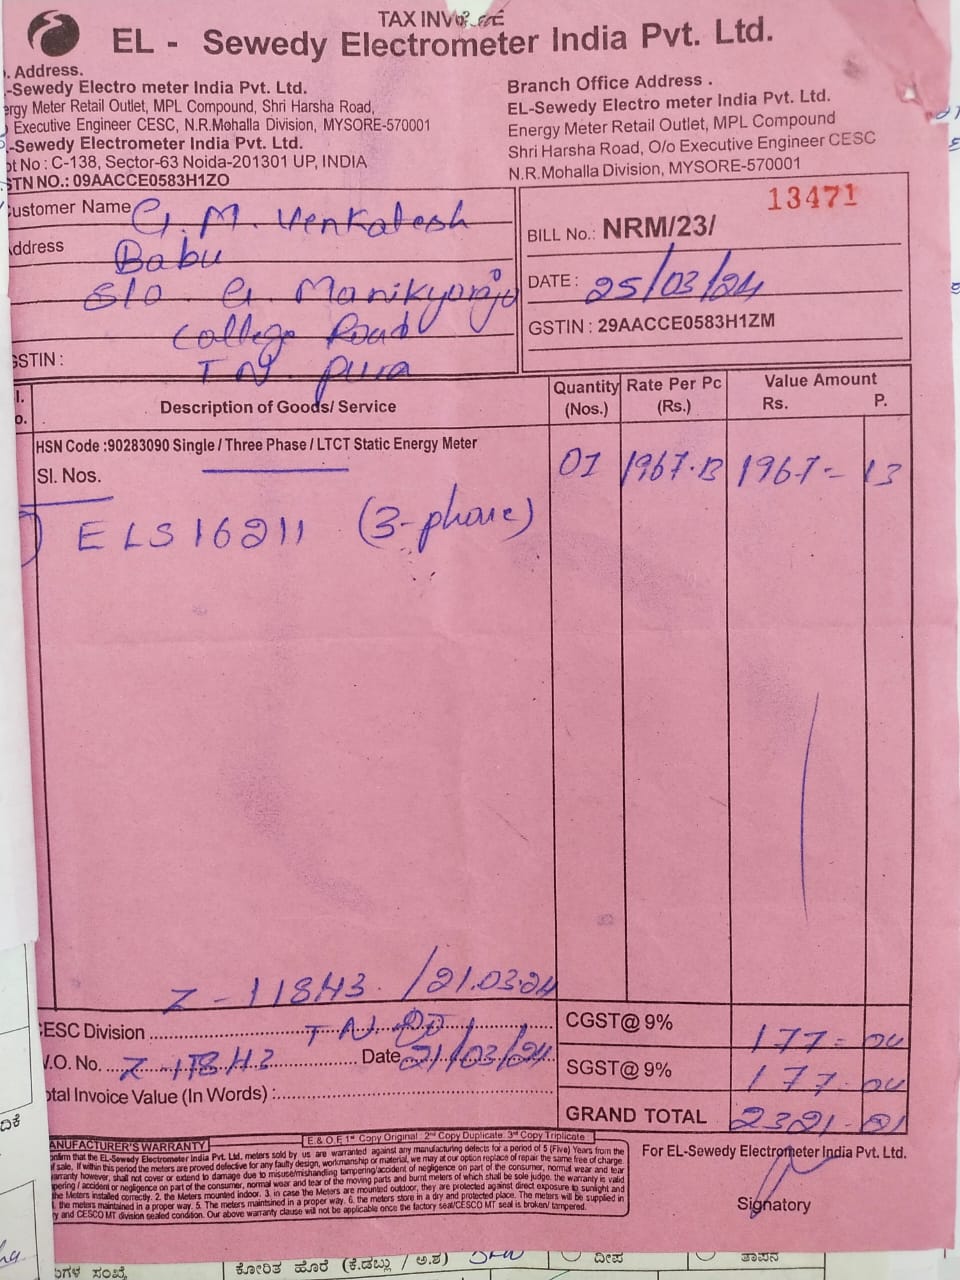 TAX INVOICE
EL - Sewedy Electrometer India Pvt. Ltd.
. Address.
-Sewedy Electro meter India Pvt. Ltd.
ergy Meter Retail Outlet, MPL Compound, Shri Harsha Road,
Executive Engineer CESC, N.R.Mohalla Division, MYSORE-570001
-Sewedy Electrometer India Pvt. Ltd.
ot No : C-138, Sector-63 Noida-201301 UP, INDIA
STN NO.: 09AACCE0583H1ZO
Branch Office Address .
EL-Sewedy Electro meter India Pvt. Ltd.
Energy Meter Retail Outlet, MPL Compound
Shri Harsha Road, O/o Executive Engineer CESC
N.R.Mohalla Division, MYSORE-570001
ustomer Name G. M. Venkatesh
ddress Babu
S/o G. Manikyaraju
College Road
GSTIN : T N. pura
13471
BILL No.: NRM/23/
DATE : 25/03/24
GSTIN : 29AACCE0583H1ZM
l. o. Description of Goods/ Service Quantity (Nos.) Rate Per Pc (Rs.) Value Amount Rs. P.
HSN Code :90283090 Single / Three Phase / LTCT Static Energy Meter
Sl. Nos. 01 1967.13 1967 - 13
ELS16211 (3-phase)
/21.03.24
CESC Division T N.
V.O. No. Date 21/03/24
otal Invoice Value (In Words) :
CGST@ 9% 177 - 04
SGST@ 9% 177 - 04
GRAND TOTAL 2321 - 21
E & O.E 1st Copy Original 2nd Copy Duplicate 3rd Copy Triplicate
ANUFACTURER'S WARRANTY
nfirm that the EL-Sewedy Electrometer India Pvt. Ltd, meters sold by us are warranted against any manufacturing defects for a period of 5 (Five) Years from the
f sale, If within this period the meters are proved defective for any faulty design, workmanship or material, we may at our option replace of repair the same free of charge.
arranty however, shall not cover or extend to damage due to misuse/mishandling tampering/accident of negligence on part of the consumer, normal wear and tear
pering / accident or negligence on part of the consumer, normal wear and tear of the moving parts and burnt meters of which shall be sole judge. the warranty is valid
the Meters installed correctly. 2. the Meters mounted indoor. 3. in case the Meters are mounted outdoor, they are protected against direct exposure to sunlight and
. the meters maintained in a proper way. 5. The meters maintsined in a proper way. 6. the meters store in a dry and protected place. The meters will be supplied in
y and CESCO MT division sealed condition. Our above warranty clause will not be applicable once the factory seal/CESCO MT seal is broken/ tampered.
For EL-Sewedy Electrometer India Pvt. Ltd.
Signatory
ಕೋರಿತ ಹೊರೆ (ಕೆ.ಡಬ್ಲ್ಯು / ಅ.ಶ) ದೀಪ ತಾಪನ
ುಗಳ ಸಂಖ್ಯೆ